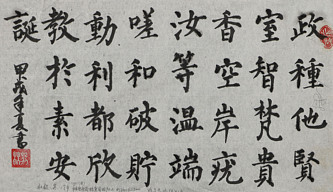 政種他賢
室智梵貴
香空岸疣
汝等温端
嗟和破貯
動利都欣
教於素安
誕
甲戌年夏書